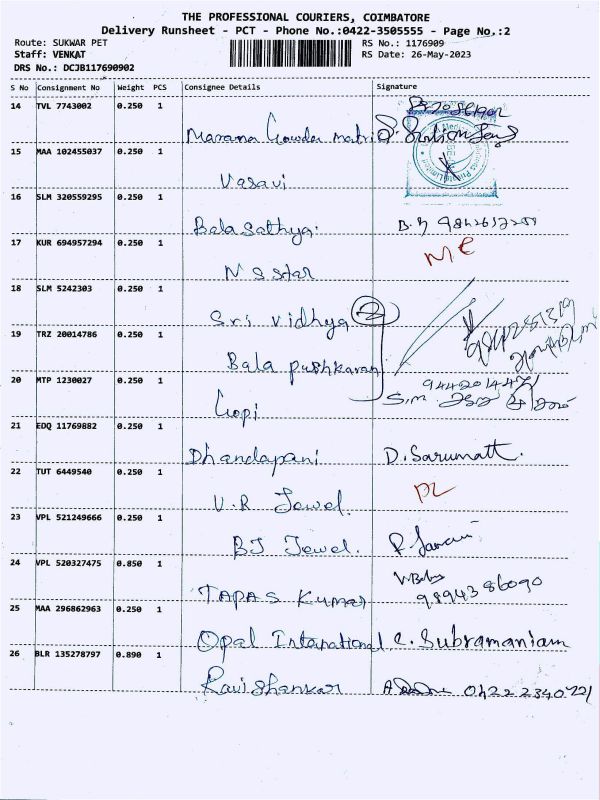 THE PROFESSIONAL COURIERS, COIMBATORE
Delivery Runsheet - PCT - Phone No.:0422-3505555 - Page No.:2
Route: SUKWAR PET RS No.: 1176909
Staff: VENKAT RS Date: 26-May-2023
DRS No.: DCJB117690902
S No Consignment No Weight PCS Consignee Details Signature
14 TVL 7743002 0.250 1
Marana Gowder
15 MAA 102455037 0.250 1
Vasavi
16 SLM 320559295 0.250 1
Bala Sathya.
17 KUR 694957294 0.250 1
N S Star
18 SLM 5242303 0.250 1
Sri Vidhya 2
19 TRZ 20014786 0.250 1
Bala pushkaran
20 MTP 1230027 0.250 1 9442014471
Gopi S.M.
21 EDQ 11769882 0.250 1
Dhandapani D. Sarumatt.
22 TUT 6449540 0.250 1
V.R Jewel.
23 VPL 521249666 0.250 1
BJ Jewel.
24 VPL 520327475 0.850 1
TAPAS Kumar 9894386090
25 MAA 296862963 0.250 1
Opal International C. Subramaniam
26 BLR 135278797 0.890 1
Ravi Shankar 0422 2340721